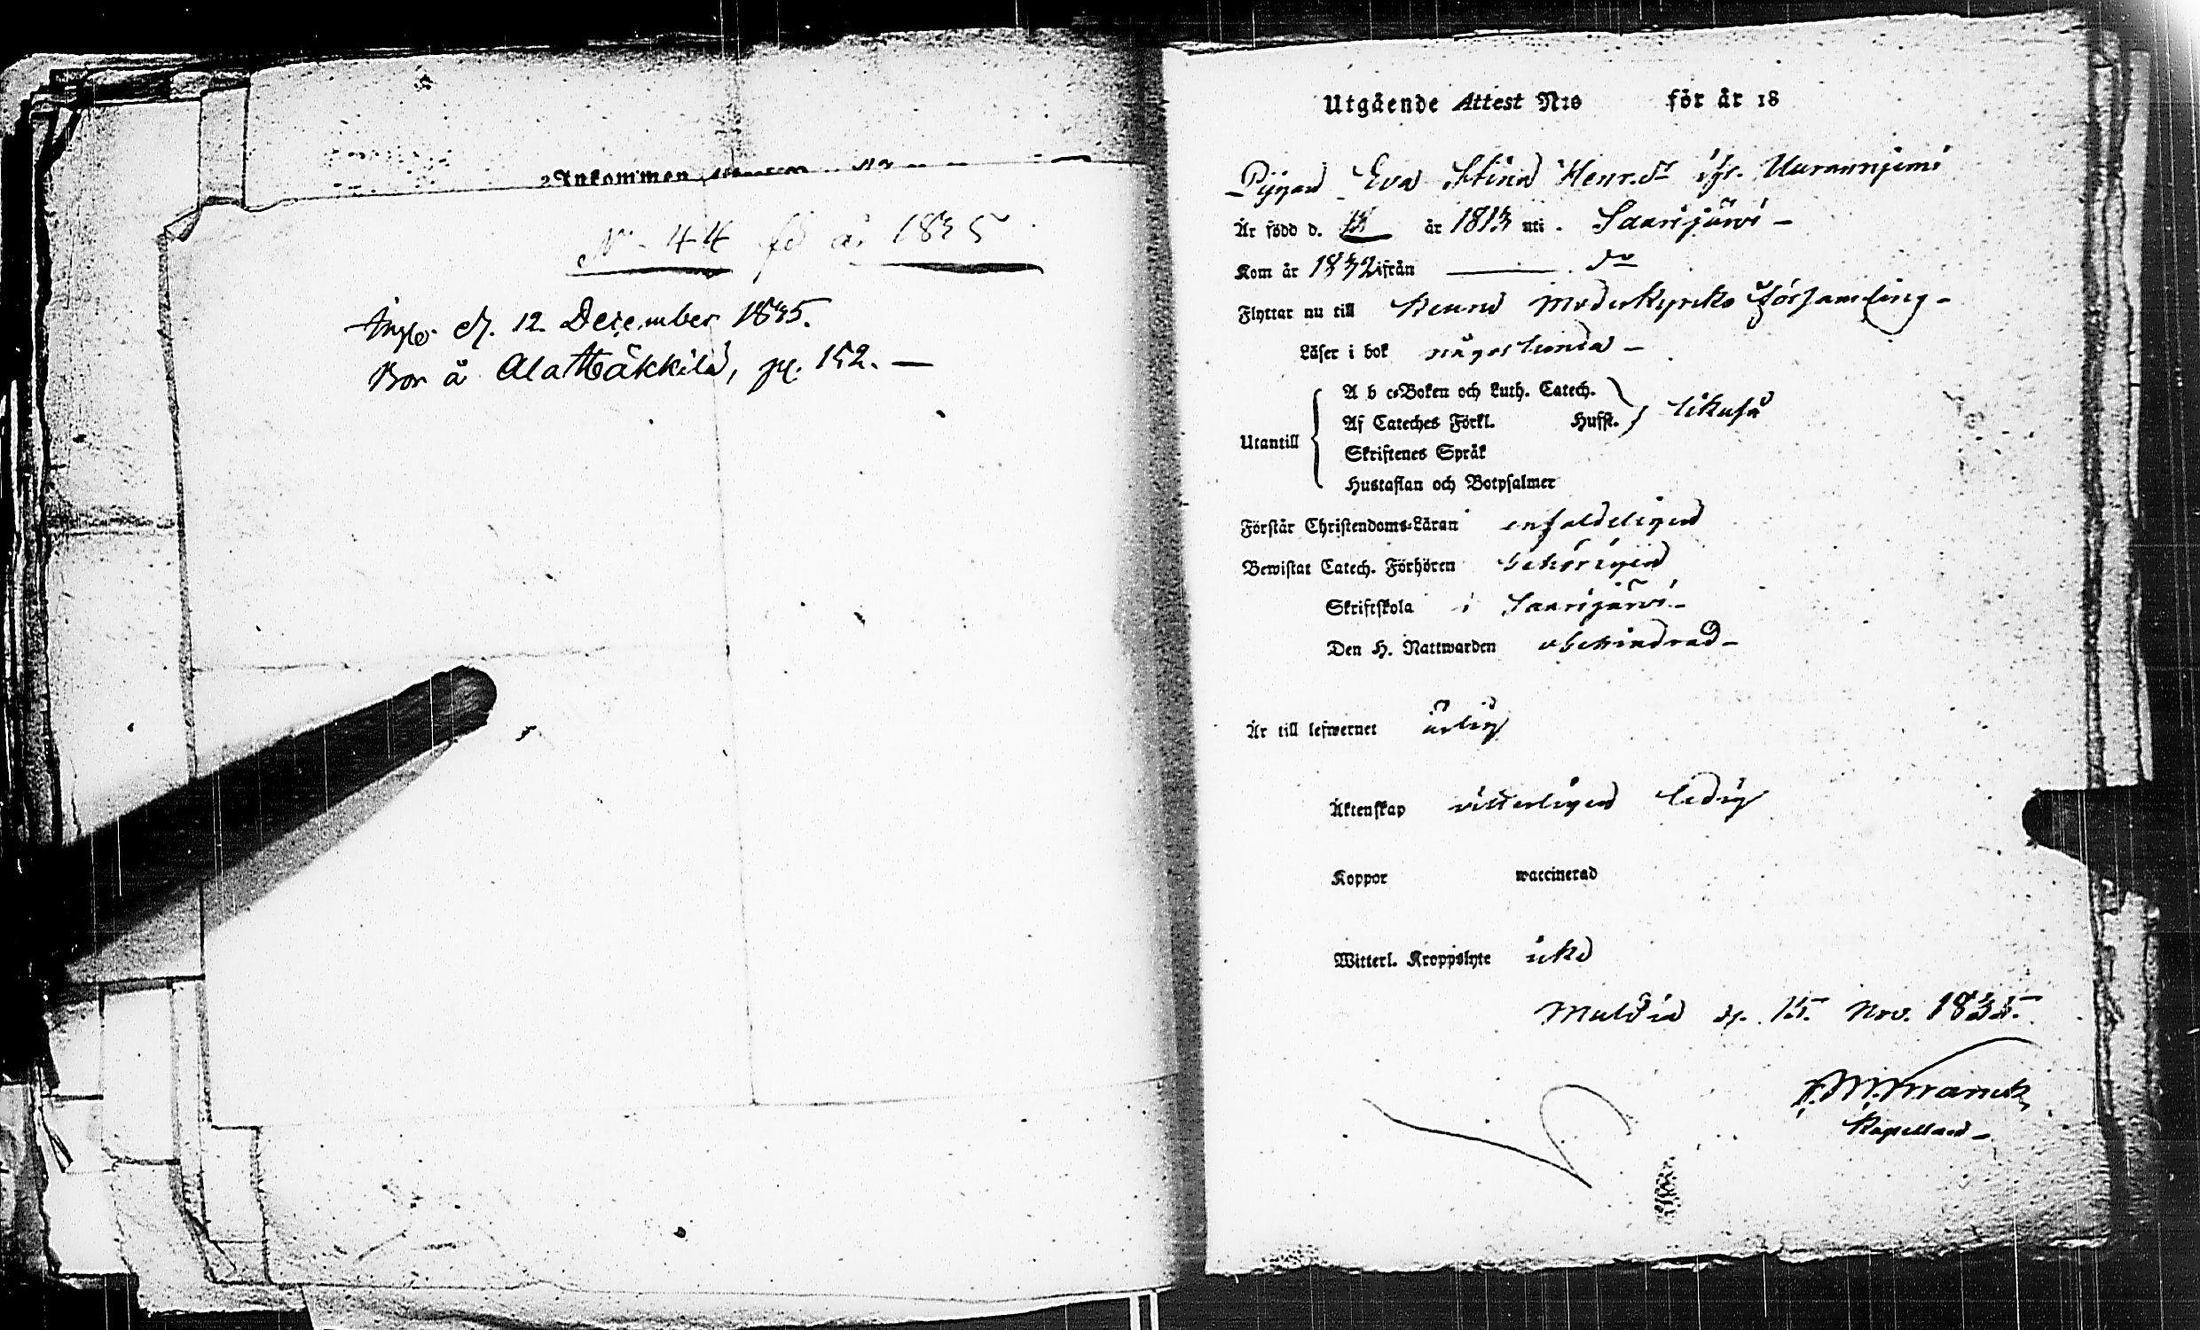 Ankommen
No 44 för år 1835
d. 12 December 1835.
Bor å Ala Häkkilä, p. 152. —
Utgående Attest N:o för år 18
Pigan Eva Stina Henr. dr
Är född d. 13 år 1813 uti Saarijärvi –
Kom år 1832 ifrån ——— do
Flyttar nu till Keuru Moderkyrko Församling –
Läser i bok någorlunda –
Utantill
A b c-Boken och Luth. Catech.
Af Cateches Förkl. Husst. likaså
Skriftenes Språk
Hustaflan och Botpsalmer
Förstår Christendoms-Läran enfaldeligen
Bewistat Catech. Förhören behörigen
Skriftskola i Saarijärvi –
Den H. Nattwarden obehindrad –
Är till lefwernet ärlig
Äktenskap vitterligen ledig
Koppor waccinerad
Witterl. Kroppslyte icke
Multia d. 15. Nov. 1835.
Kapellan –